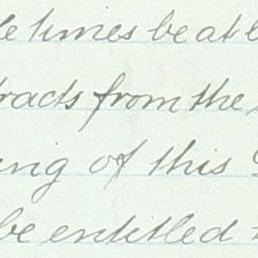 times be at
tracts from the
ing of this
be entitled